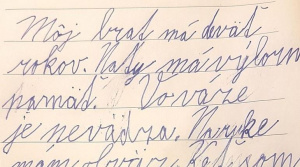 Môj brat má deväť
rokov. má výborn
pamäť. Vo váze
je nevädza. Na ruke
mám Keď som